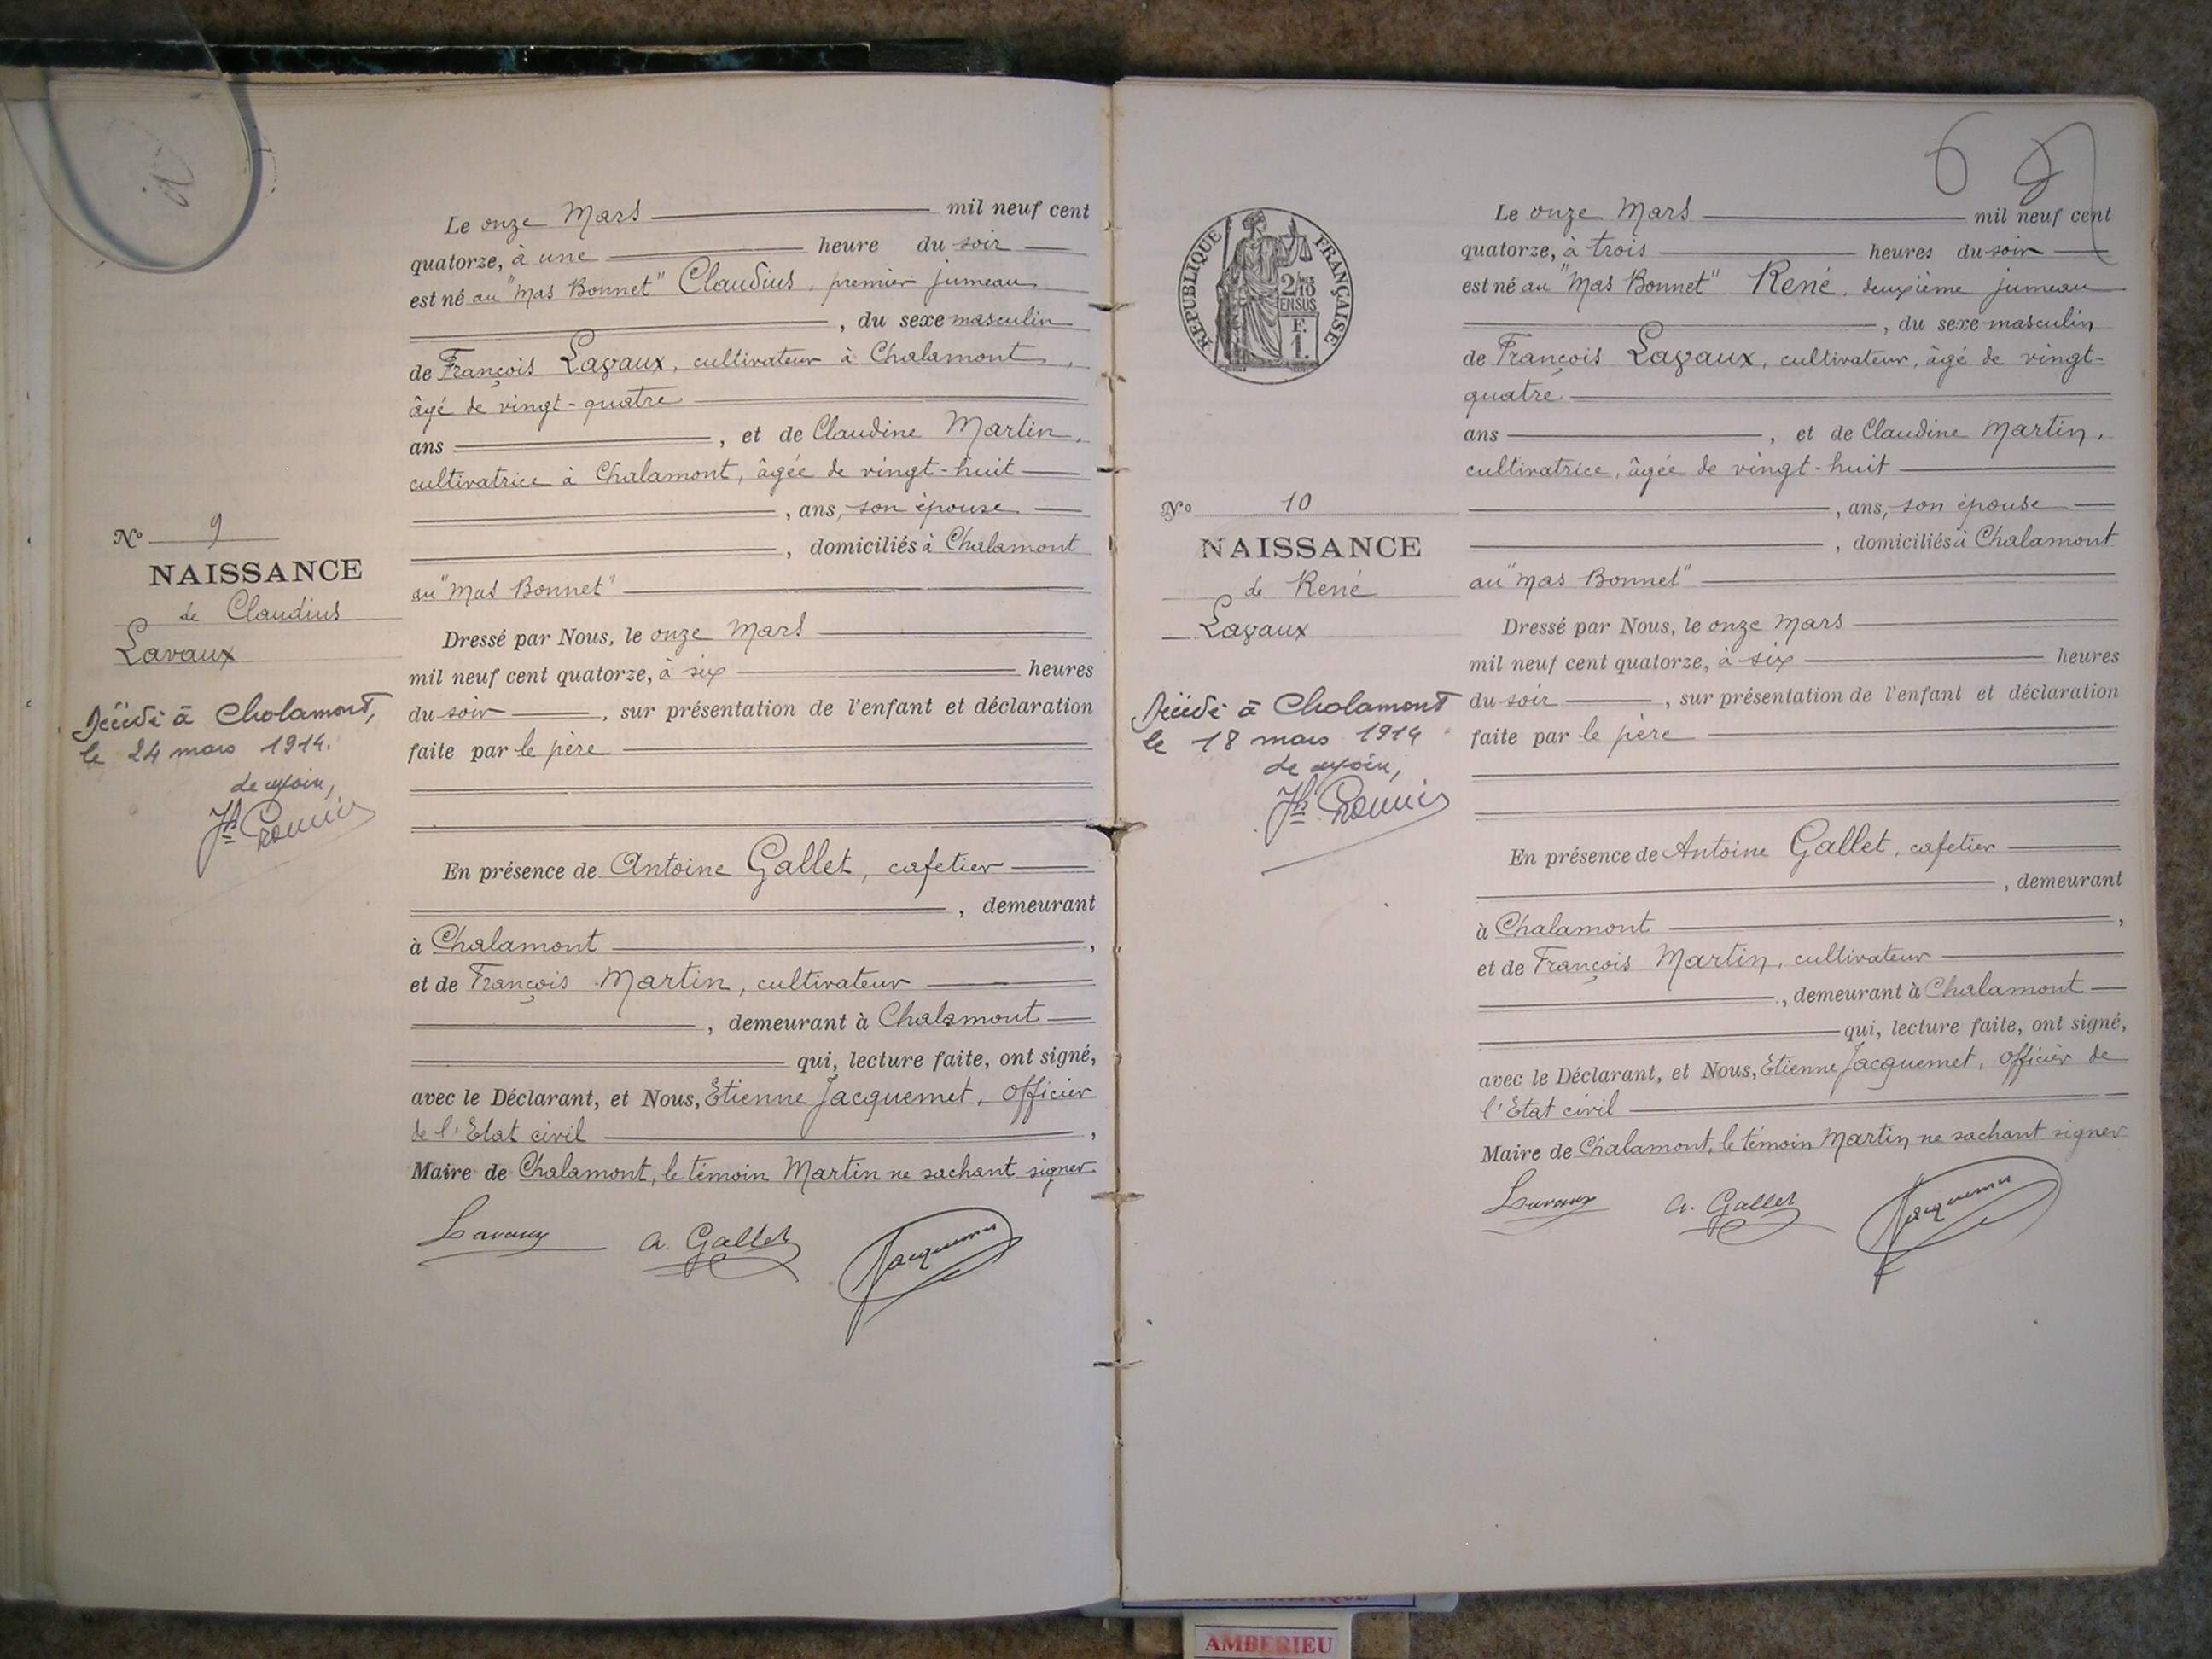 Le onze Mars mil neuf cent
quatorze, à une heure du soir
est né au "Mas Bonnet" Claudius, premier jumeau
, du sexe masculin
de François Lavaux, cultivateur à Chalamont,
âgé de vingt-quatre
ans , et de Claudine Martin,
cultivatrice à Chalamont, âgée de vingt-huit
, ans, son épouse
, domiciliés à Chalamont
au "Mas Bonnet"
N° 9
NAISSANCE
de Claudius
Lavaux
Décédé à Chalamont,
le 24 mars 1914.
Dressé par Nous, le onze Mars
mil neuf cent quatorze, à six heures
du soir , sur présentation de l'enfant et déclaration
faite par le père
En présence de Antoine Gallet, cafetier
, demeurant
à Chalamont ,
et de François Martin, cultivateur
, demeurant à Chalamont
qui, lecture faite, ont signé,
avec le Déclarant, et Nous, Etienne Jacquemet, Officier
de l'Etat civil ,
Maire de Chalamont, le témoin Martin ne sachant signer
Lavaux A. Gallet Jacquemet
6
REPUBLIQUE FRANÇAISE
2/10
EN SUS
F.
1.
Le onze Mars mil neuf cent
quatorze, à trois heures du soir
est né au "Mas Bonnet" René, deuxième jumeau
, du sexe masculin
de François Lavaux, cultivateur, âgé de vingt-
quatre
ans , et de Claudine Martin,
cultivatrice, âgée de vingt-huit
, ans, son épouse
, domiciliés à Chalamont
au "Mas Bonnet"
N° 10
NAISSANCE
de René
Lavaux
Décédé à Chalamont
le 18 mars 1914
Dressé par Nous, le onze Mars
mil neuf cent quatorze, à six heures
du soir , sur présentation de l'enfant et déclaration
faite par le père
En présence de Antoine Gallet, cafetier
, demeurant
à Chalamont ,
et de François Martin, cultivateur
, demeurant à Chalamont
qui, lecture faite, ont signé,
avec le Déclarant, et Nous, Etienne Jacquemet, Officier de
l'Etat civil
Maire de Chalamont, le témoin Martin ne sachant signer
Lavaux A. Gallet Jacquemet
AMBERIEU